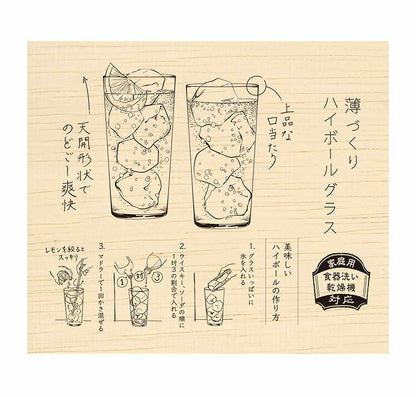 薄づくり
ハイボールグラス
上品な
口当たり
天開形状で
のどごし爽快
家庭用
食器洗い
乾燥機
対応
美味しい
ハイボールの作り方
1. グラスいっぱいに
氷を入れる
2. ウイスキー、ソーダの順に
1対3の割合で入れる
① 対 ③
3. マドラーで1回かき混ぜる
レモンを絞ると
スッキリ